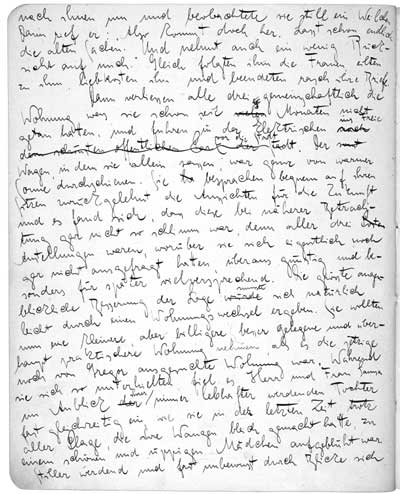 nach ihnen um und beobachtete sie still ein Weilchen
Dann rief er: Also kommt doch her. Lasst schon endlich
die alten Sachen. Und nehmt auch ein wenig Rück-
sicht auf mich. Gleich folgten ihm die Frauen eilten
zu ihm liebkosten ihn und beendeten rasch ihre Briefe.
Dann verliessen alle drei gemeinschaftlich die
Wohnung was sie schon seit Monaten nicht
getan hatten und fuhren in der Elektrischen ins Freie
vor die Stadt. Der
Wagen, in dem sie allein sassen war ganz von warmer
Sonne durchschienen. Sie besprachen bequem auf ihren
Sitzen zurückgelehnt die Aussichten für die Zukunft
und es fand sich, dass diese bei näherer Betrach-
tung gar nicht so schlimm war denn aller drei
Anstellungen waren, worüber sie sich eigentlich noch
gar nicht ausgefragt hatten überaus günstig und be-
sonders für später vielversprechend. Die grösste augen-
blickliche Besserung der Lage musste sich natürlich
leicht durch einen Wohnungswechsel ergeben. Sie wollten
nun eine kleinere, aber billigere besser gelegene und über-
haupt praktischere Wohnung nehmen, als es die jetzige
noch von Gregor ausgesuchte Wohnung war. Während
sie sich so unterhielten fiel es Herrn und Frau Samsa
im Anblick ihrer immer lebhafter werdenden Tochter
fast gleichzeitig ein, wie sie in der letzten Zeit trotz
aller Plage, die ihre Wangen bleich gemacht hatte, zu
einem schönen und üppigen Mädchen aufgeblüht war
Stiller werdend und fast unbewusst durch Blicke sich